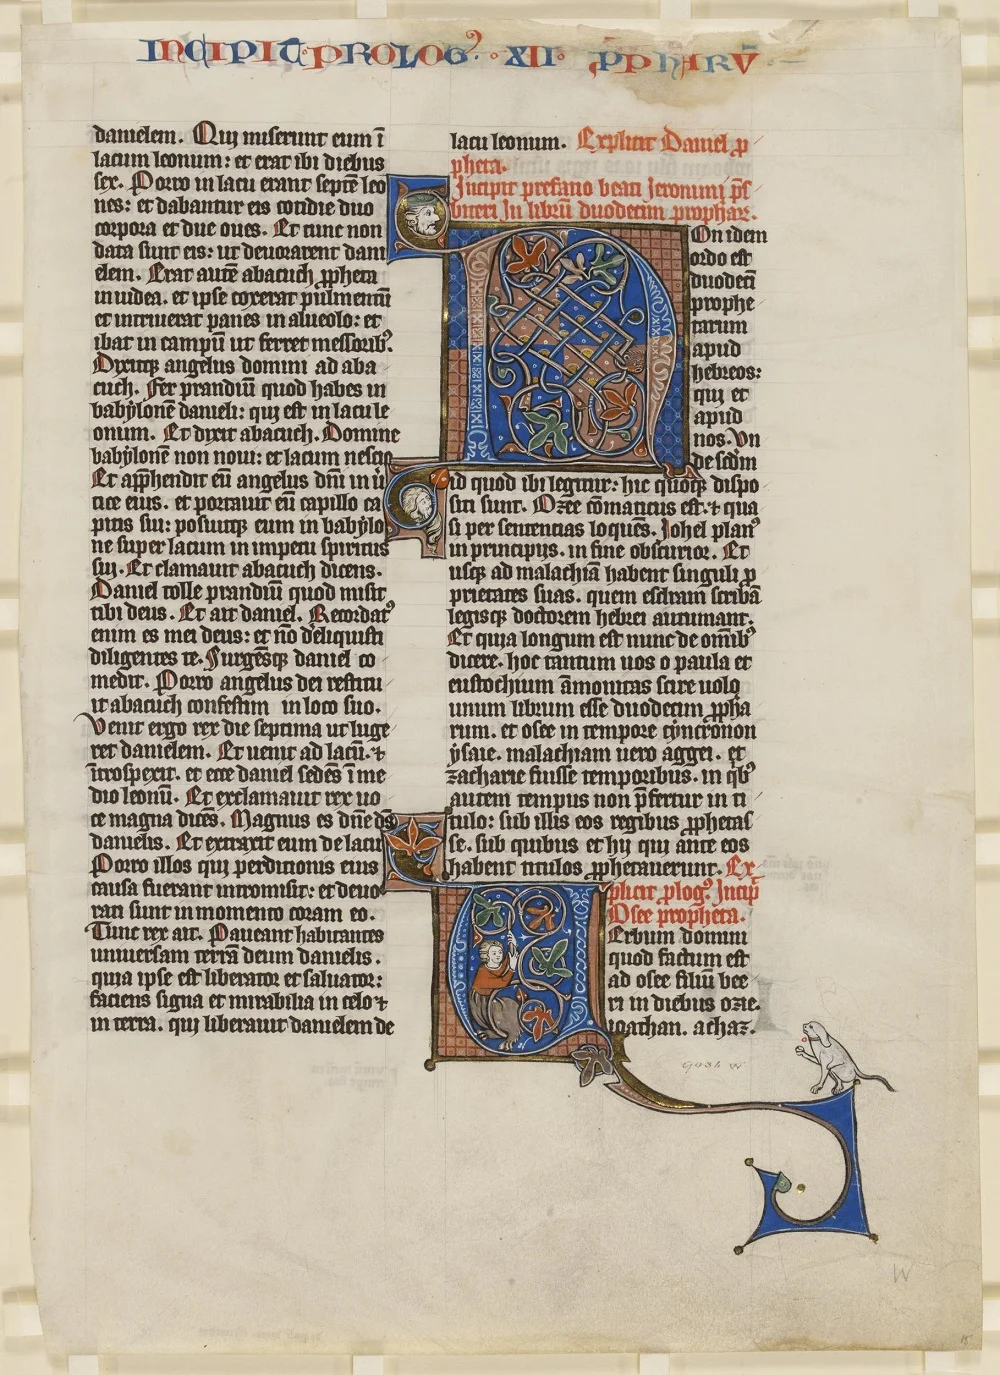 INCIPIT·PROLOG᾿·XII·PPHARV̄
danielem. Qui miserunt eum ī
lacum leonum: et erat ibi diebus
sex. Porro in lacu erant septē leo
nes: et dabantur eis cotidie duo
corpora et due oues. Et tunc non
data sunt eis: ut deuorarent dani
elem. Erat autē abacuch ꝓpheta
in iudea. et ipse coxerat pulmentū
et intriuerat panes in alueolo: et
ibat in campū ut ferret messorib᾿.
Dixitqꝫ angelus domini ad aba
cuch. Fer prandiū quod habes in
babylonē danieli: qui est in lacu le
onum. Et dixit abacuch. Domine
babylonē non noui: et lacum nescio
Et app̄hendit eū angelus dn̄i in ū
tice eius. et portauit eū capillo ca
pitis sui: posuitqꝫ eum in babylo
ne super lacum in impetu spiritus
sui. Et clamauit abacuch dicens.
Daniel tolle prandiū quod misit
tibi deus. Et ait daniel. Recordat᾿
enim es mei deus: et nō deliquisti
diligentes te. Surgēsqꝫ daniel co
medit. Porro angelus dei restitu
it abacuch confestim in loco suo.
Venit ergo rex die septima ut luge
ret danielem. Et uenit ad lacū. ⁊
ītrospexit. et ecce daniel sedēs ī me
dio leonū. Et exclamauit rex uo
ce magna dicēs. Magnus es dn̄e ds̄
danielis. Et extraxit eum de lacu
Porro illos qui perditionis eius
causa fuerant intromisit: et deuo
rati sunt in momento coram eo.
Tunc rex ait. Paueant habitantes
uniuersam terrā deum danielis.
quia ipse est liberator et saluator:
faciens signa et mirabilia in celo ⁊
in terra. qui liberauit danielem de
lacu leonum. Explicit Daniel ꝓ
pheta.
Incipit prefatio beati Jeronimi p̄s
biteri In librū duodecim prophar̄.
On idem
ordo est
duodecī
prophe
tarum
apud
hebreos:
qui et
apud
nos. Vn
de scdm̄
id quod ibi legitur: hic quoqꝫ dispo
siti sunt. Ozee cōmaticus est. ⁊ qua
si per sententias loquēs. Johel plan᾿
in principijs. in fine obscurior. Et
usqꝫ ad malachiā habent singuli ꝓ
prietates suas. quem esdram scribā
legisqꝫ doctorem hebrei autumant.
Et quia longum est nunc de om̄ib᾿
dicere. hoc tantum uos o paula et
eustochium āmonitas scire uolo
unum librum esse duodecim ꝓpha
rum. et osee in tempore cyncronon
ysaie. malachiam uero aggei. et
zacharie fuisse temporibus. in qb᾿
autem tempus non p̄fertur in ti
tulo: sub illis eos regibus ꝓphetas
se. sub quibus et hij qui ante eos
habent titulos ꝓphetauerunt. Ex
plicit ꝓlog᾿. Incip̄
Osee propheta.
Erbum domini
quod factum est
ad osee filiū bee
ri in diebus ozie.
ioathan. achaz.
W
15